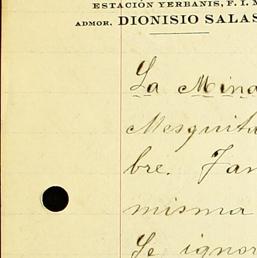 ESTACIÓN YERBANIS, F. I. M
ADMOR. DIONISIO SALAS
La Mina
Mesquit
bre. Fan
misma
Se ignor